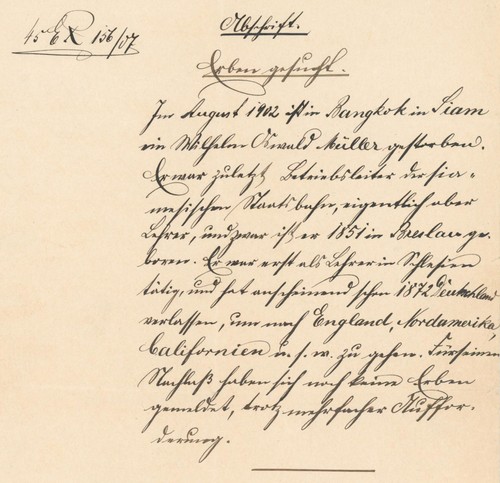 Abschrift.
45 156/07
Erben gesucht.
Im August 1902 ist in Bangkok in Siam
ein Wilhelm Oswald Müller gestorben.
Er war zuletzt Betriebsleiter der sia-
mesischen Staatsbahn, eigentlich aber
Lehrer, und zwar ist er 1851 in Breslau ge-
boren. Er war erst als Lehrer in Schlesien
tätig, und hat anscheinend schon 1872 Deutschland
verlassen, um nach England, Nordamerika,
Californien u. s. w. zu gehen. Für seinen
Nachlaß haben sich noch keine Erben
gemeldet, trotz mehrfacher Auffor-
derung.